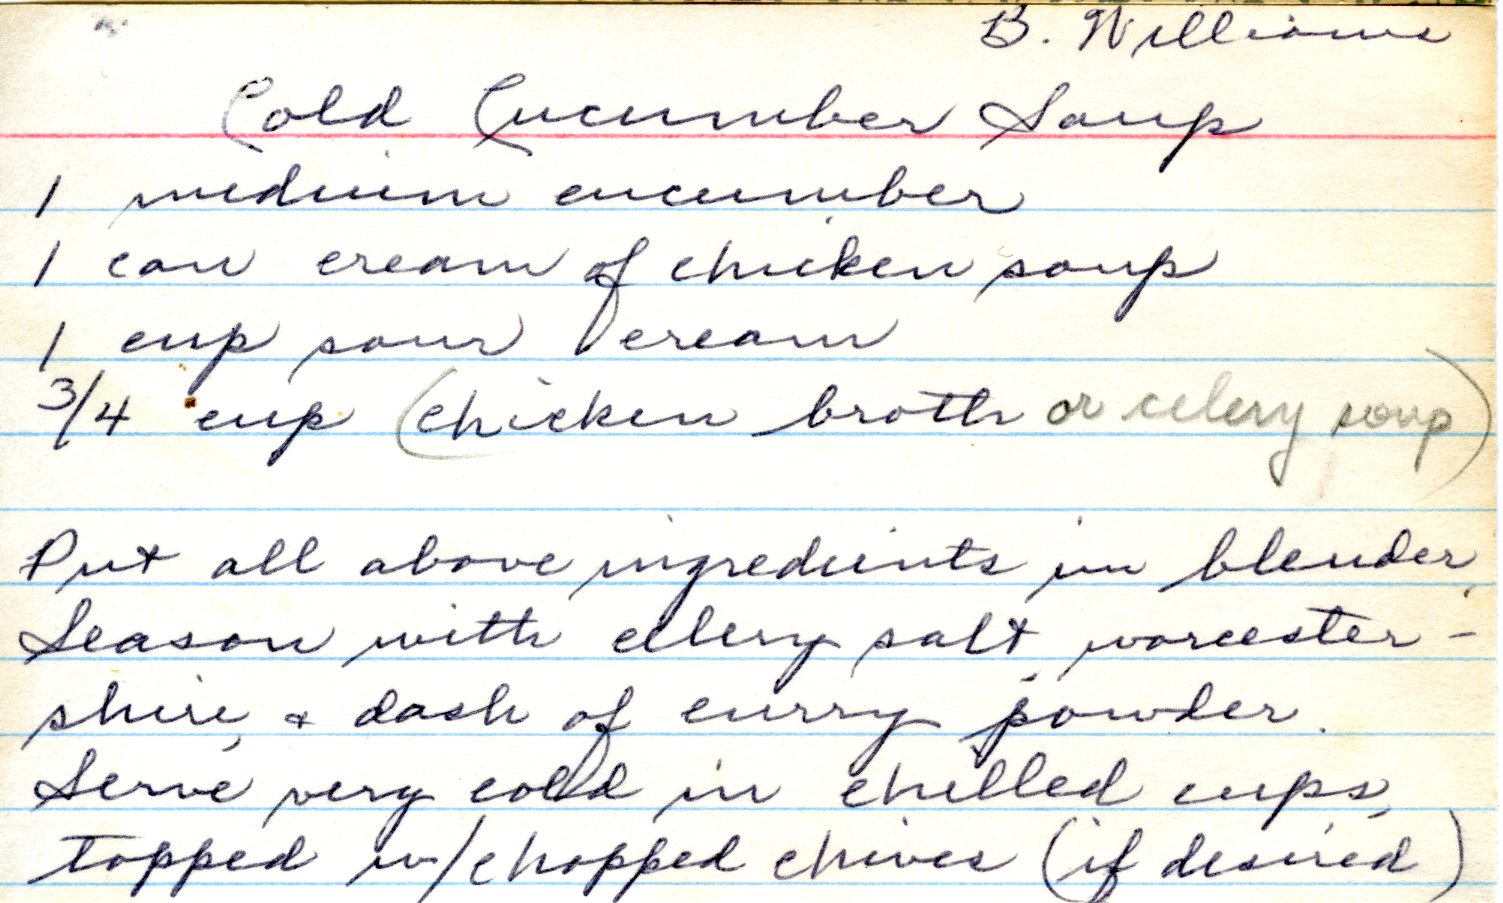 B. Williams
Cold Cucumber Soup
1 medium cucumber
1 can cream of chicken soup
1 cup sour cream
3/4 cup (chicken broth or celery soup)
Put all above ingredients in blender,
Season with celery salt, worcester-
shire, & dash of curry powder.
Serve very cold in chilled cups,
topped w/chopped chives (if desired)